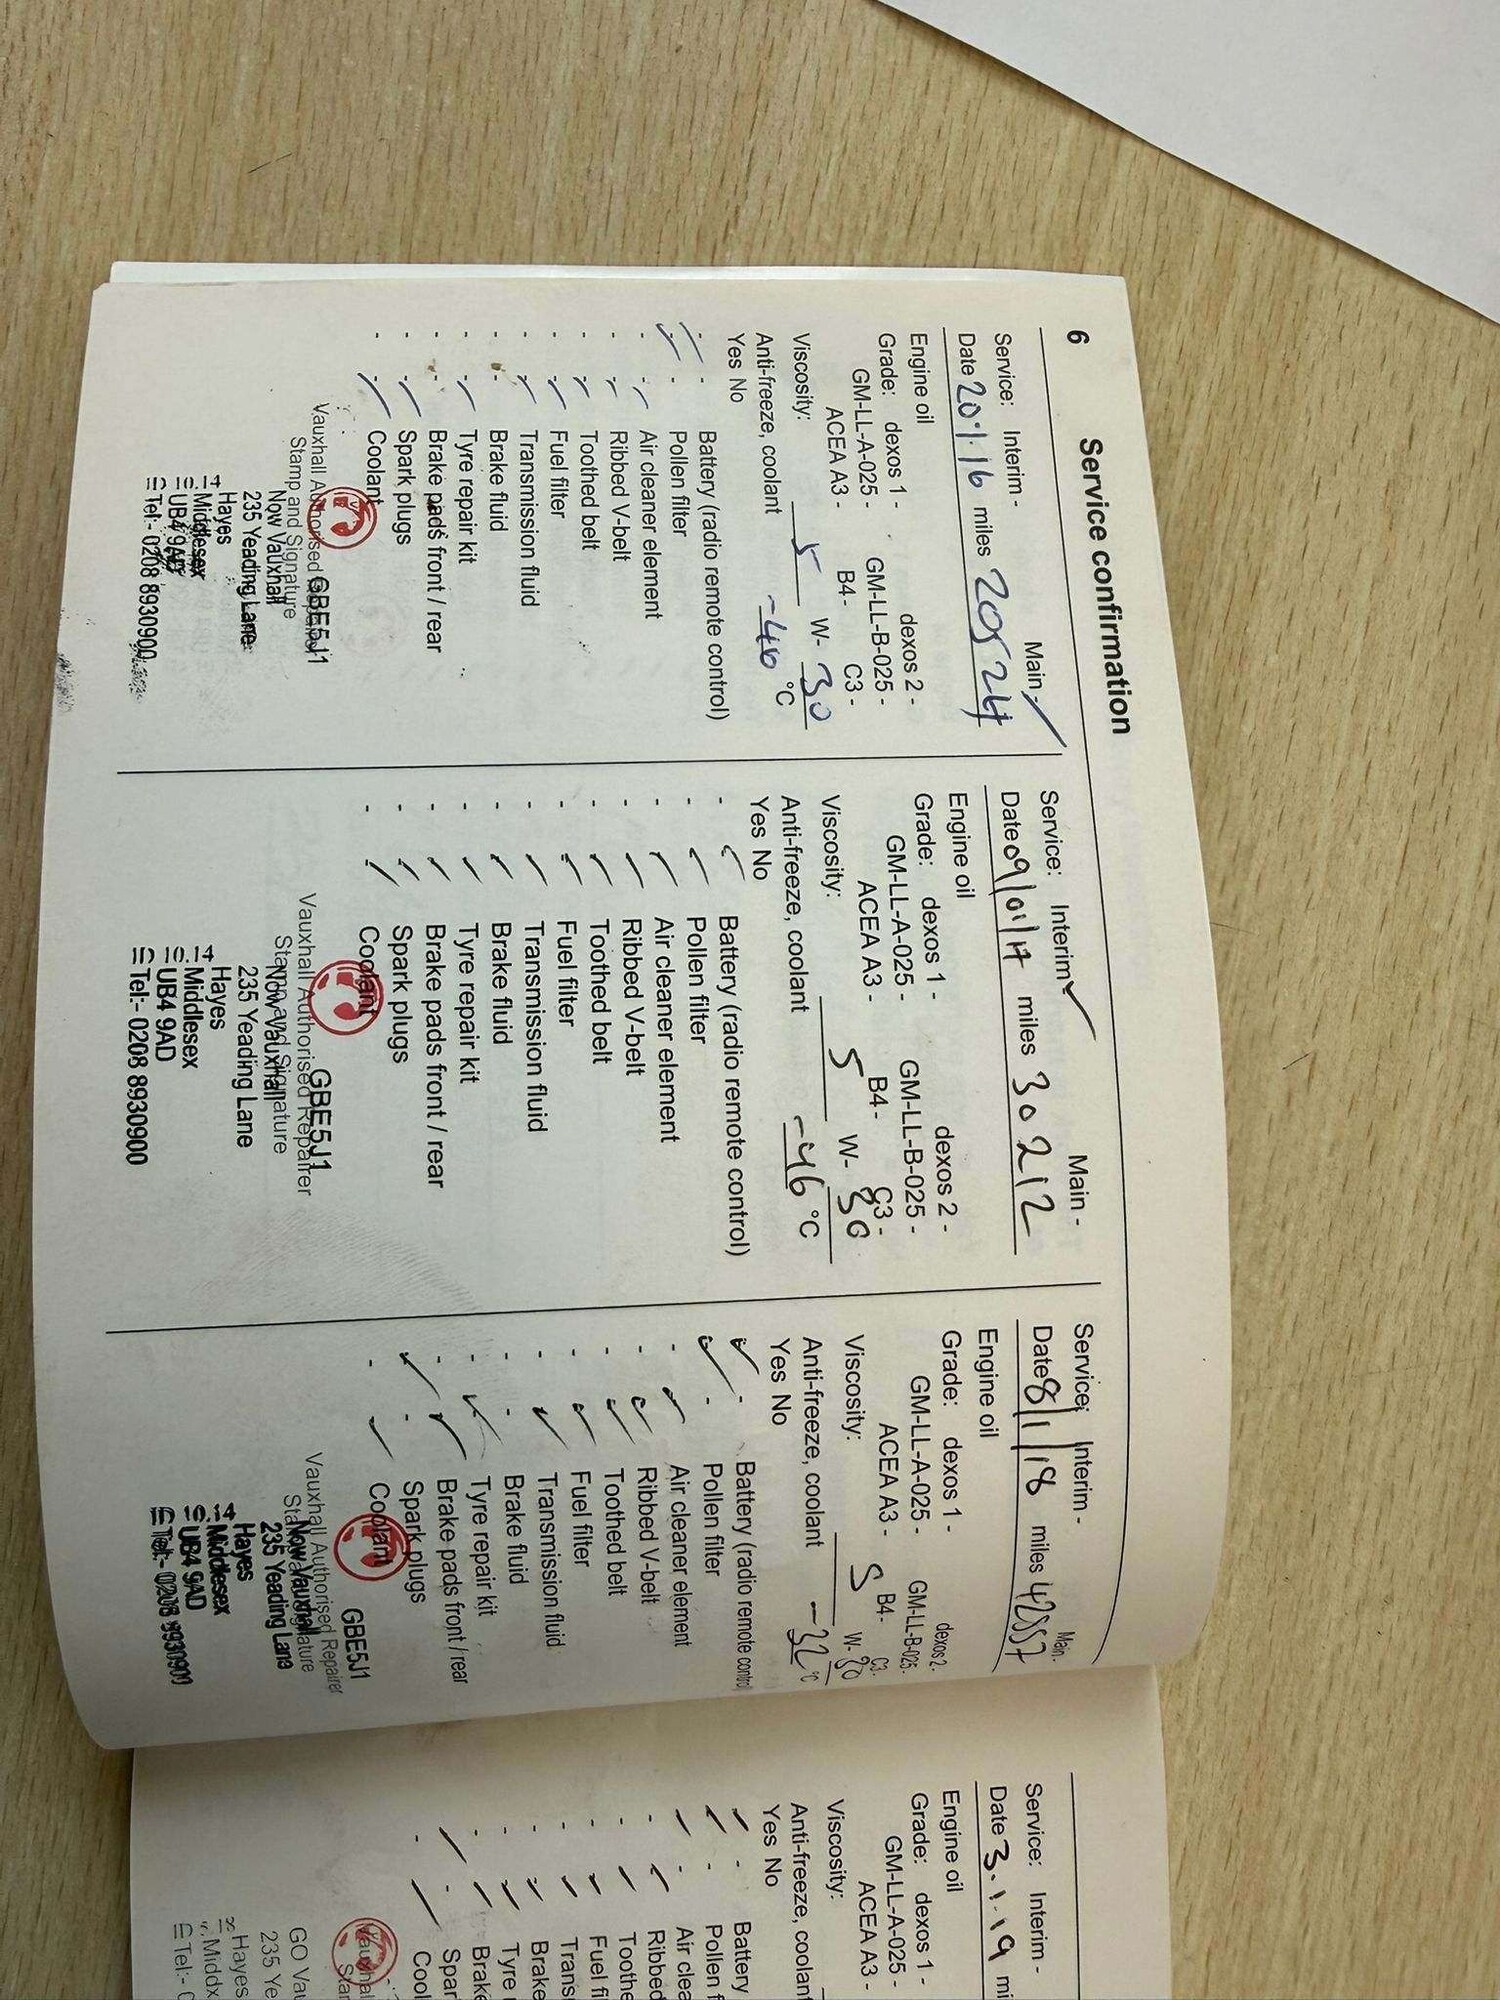 6
Service confirmation
Service: Interim - Main -
Date 20.1.16 miles 20524
Engine oil
Grade: dexos 1 - dexos 2 -
GM-LL-A-025 - GM-LL-B-025 -
ACEA A3 - B4 - C3 -
Viscosity: 5 W- 30
Anti-freeze, coolant -46 °C
Yes No
- Battery (radio remote control)
- Pollen filter
- Air cleaner element
- Ribbed V-belt
- Toothed belt
- Fuel filter
- Transmission fluid
- - Brake fluid
- Tyre repair kit
- - Brake pads front / rear
- Spark plugs
- Coolant
Vauxhall Authorised
Stamp and Signature
GBE5J1
Now Vauxhall
235 Yeading Lane
Hayes
Middlesex
UB4 9AD
Tel:- 0208 8930900
Service: Interim Main -
Date 09/01/17 miles 30212
Engine oil
Grade: dexos 1 - dexos 2 -
GM-LL-A-025 - GM-LL-B-025 -
ACEA A3 - B4 - C3 -
Viscosity: 5 W- 30
Anti-freeze, coolant -46 °C
Yes No
- Battery (radio remote control)
- Pollen filter
- Air cleaner element
- Ribbed V-belt
- Toothed belt
- Fuel filter
- Transmission fluid
- Brake fluid
- Tyre repair kit
- Brake pads front / rear
- Spark plugs
- Coolant
Vauxhall Authorised Repairer
Stamp and Signature
GBE5J1
Now Vauxhall
235 Yeading Lane
Hayes
Middlesex
UB4 9AD
Tel:- 0208 8930900
Service: Interim - Main -
Date 8/1/18 miles 42557
Engine oil
Grade: dexos 1 - dexos 2 -
GM-LL-A-025 - GM-LL-B-025 -
ACEA A3 - B4 - C3 -
Viscosity: 5 W- 30
Anti-freeze, coolant -32 °C
Yes No
- Battery (radio remote control
- Pollen filter
- Air cleaner element
- Ribbed V-belt
- Toothed belt
- Fuel filter
- Transmission fluid
- - Brake fluid
- Tyre repair kit
- Brake pads front / rear
- Spark plugs
- Coolant
Vauxhall Authorised Repairer
GBE5J1
Now Vauxhall
235 Yeading Lane
Hayes
Middlesex
UB4 9AD
Tel:- 0208 8930900
Service: Interim -
Date 3.1.19 mi
Engine oil
Grade: dexos 1 -
GM-LL-A-025 -
ACEA A3 -
Viscosity:
Anti-freeze, coolant
Yes No
- Battery
- Pollen f
- Air clea
- Ribbed
- Toothe
- Fuel fi
- Trans
- Brake
- Tyre
- Brake
- Spar
- Cool
GO Vau
235 Ye
Hayes
Middx
Tel:- 0